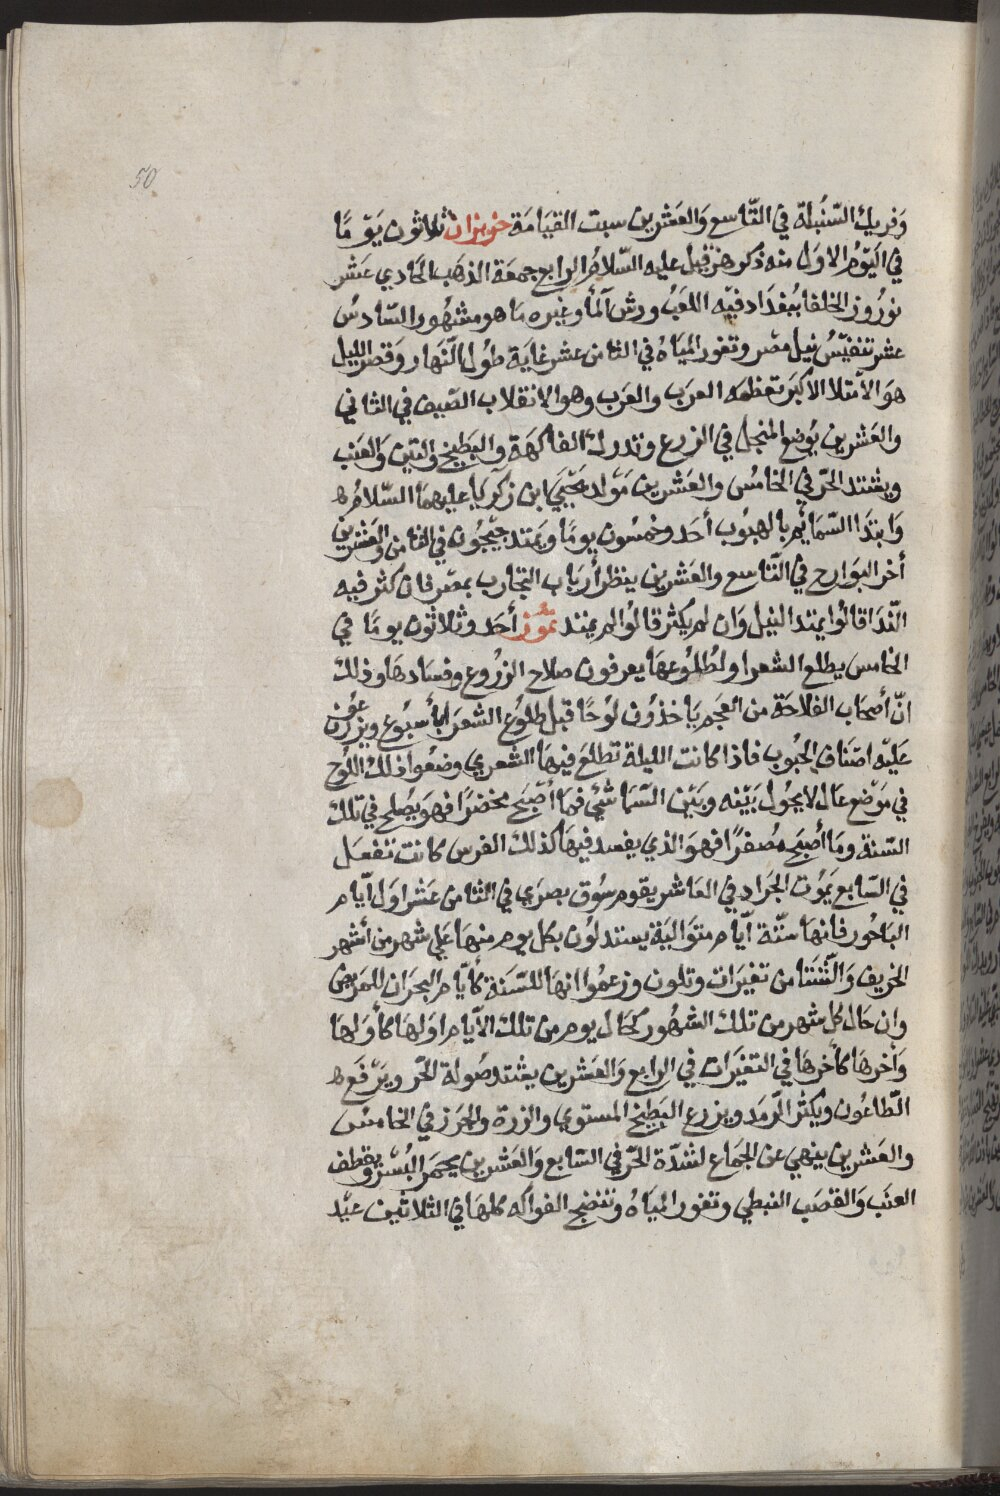 50
وفريك السّنبلة في التّاسع والعشرين سبت القيامة حزيران ثلاثون يوّمًا
في اليَوّم الاوَل منه ذكر حزقيل عليه السّلام الرابع جمعة الذهب الحادي عشر
نورُوز الخلفا ببُغدَاد فيه اللعَبُ ورش ألمأ وغيره مَا هو مشهُور السّادسُ
عشر تنفسُ نيل مصر وتغور الميَاهُ في الثامن عشر غايَة طوُل النّهار وقصر الليل
هوَ الامتلا الاكبر تعظمه العرَب والعرَب وهو الانقلاب الصّيف في الثاني
والعَشرين يُوضع المنجل في الزرع وتدرك الفاكهة والبطيخ والتين والعنب
ويشتد الحرّ في الخامسُ والعشرين مَوّلد يَحَيَي ابن زكرَيا عليهمَا السّلام
وَابتدَا السّمَائم بالهبُوب أحَد وخمسُون يومًا ويَمتد جيحُون في الثامن والعَشرين
أخر البوَارح في التّاسع والعَشرين ينظر أربَاب التجَارب بمصر فان كثر فيه
النّدَا قالوُا يمتد النيل وَان لم يكثر قالوُا لم يمتد تمّوُز أحَد وثلاثون يومًا في
الخامس يطلع الشعرا ولطُلوُعهَا يعرفون صلاح الزرُوع وفسَادهَا وذلك
انّ أصحَاب الفلاحَة من العَجم يَاخذوُن لوُحًا قبل طلوُع الشعرَا بأسبوُع ويزرعُون
عَليّه اصنَاف الحبُوب فاذا كانت الليلة تطلعَ فيهَا الشعري وضعُوا ذلك اللوُح
في موَضع عَال لا يحوُل بَيّنه وبَيّن السّمَا شئي فمَا أصّبَح مخضرًا فهوَ يصُلح في تلك
السّنة ومَا أصبَح مُصفرًا فهوَ الذي يفسد فيهَا كذلك الفرس كانت تفعَل
في السّابع يَمُوت الجرَاد في العَاشر يقوم سوُق بصرَي في الثامن عَشر اوَل أيّام
البَاحُور فانهَا ستّة أيّام متوَاليَة يستدلوُن بكل يوم منهَا عَلي شهر من أشهر
الخريف وَالشّتَا من تغيرَات وتلون وزعمُوا انهَا للسّنَة كأيّام البحرَان للمَريض
وان حَال كل شهر من تلك الشهوُر كحَال يوم من تلك الاَيّام اوَلهَا كأوَلهَا
وأخرهَا كأخرهَا في التغيرَات في الرابع والعَشرين يشتد صُولة الحَر ويَرّفع
الطّاعُون ويكثر الرّمَد ويزرع البَطيخ المستوي والزرة والجزر في الخامسُ
والعَشرين ينهي عن الجمَاع لشدّة الحَرّ في السّابع وَالعَشرين يحمرَ البُسّر ويقطف
العنَب وَالقصَب النبطي وتغور الميَاهُ وتنضج الفواكه كلهَا في الثلاثين عيّد